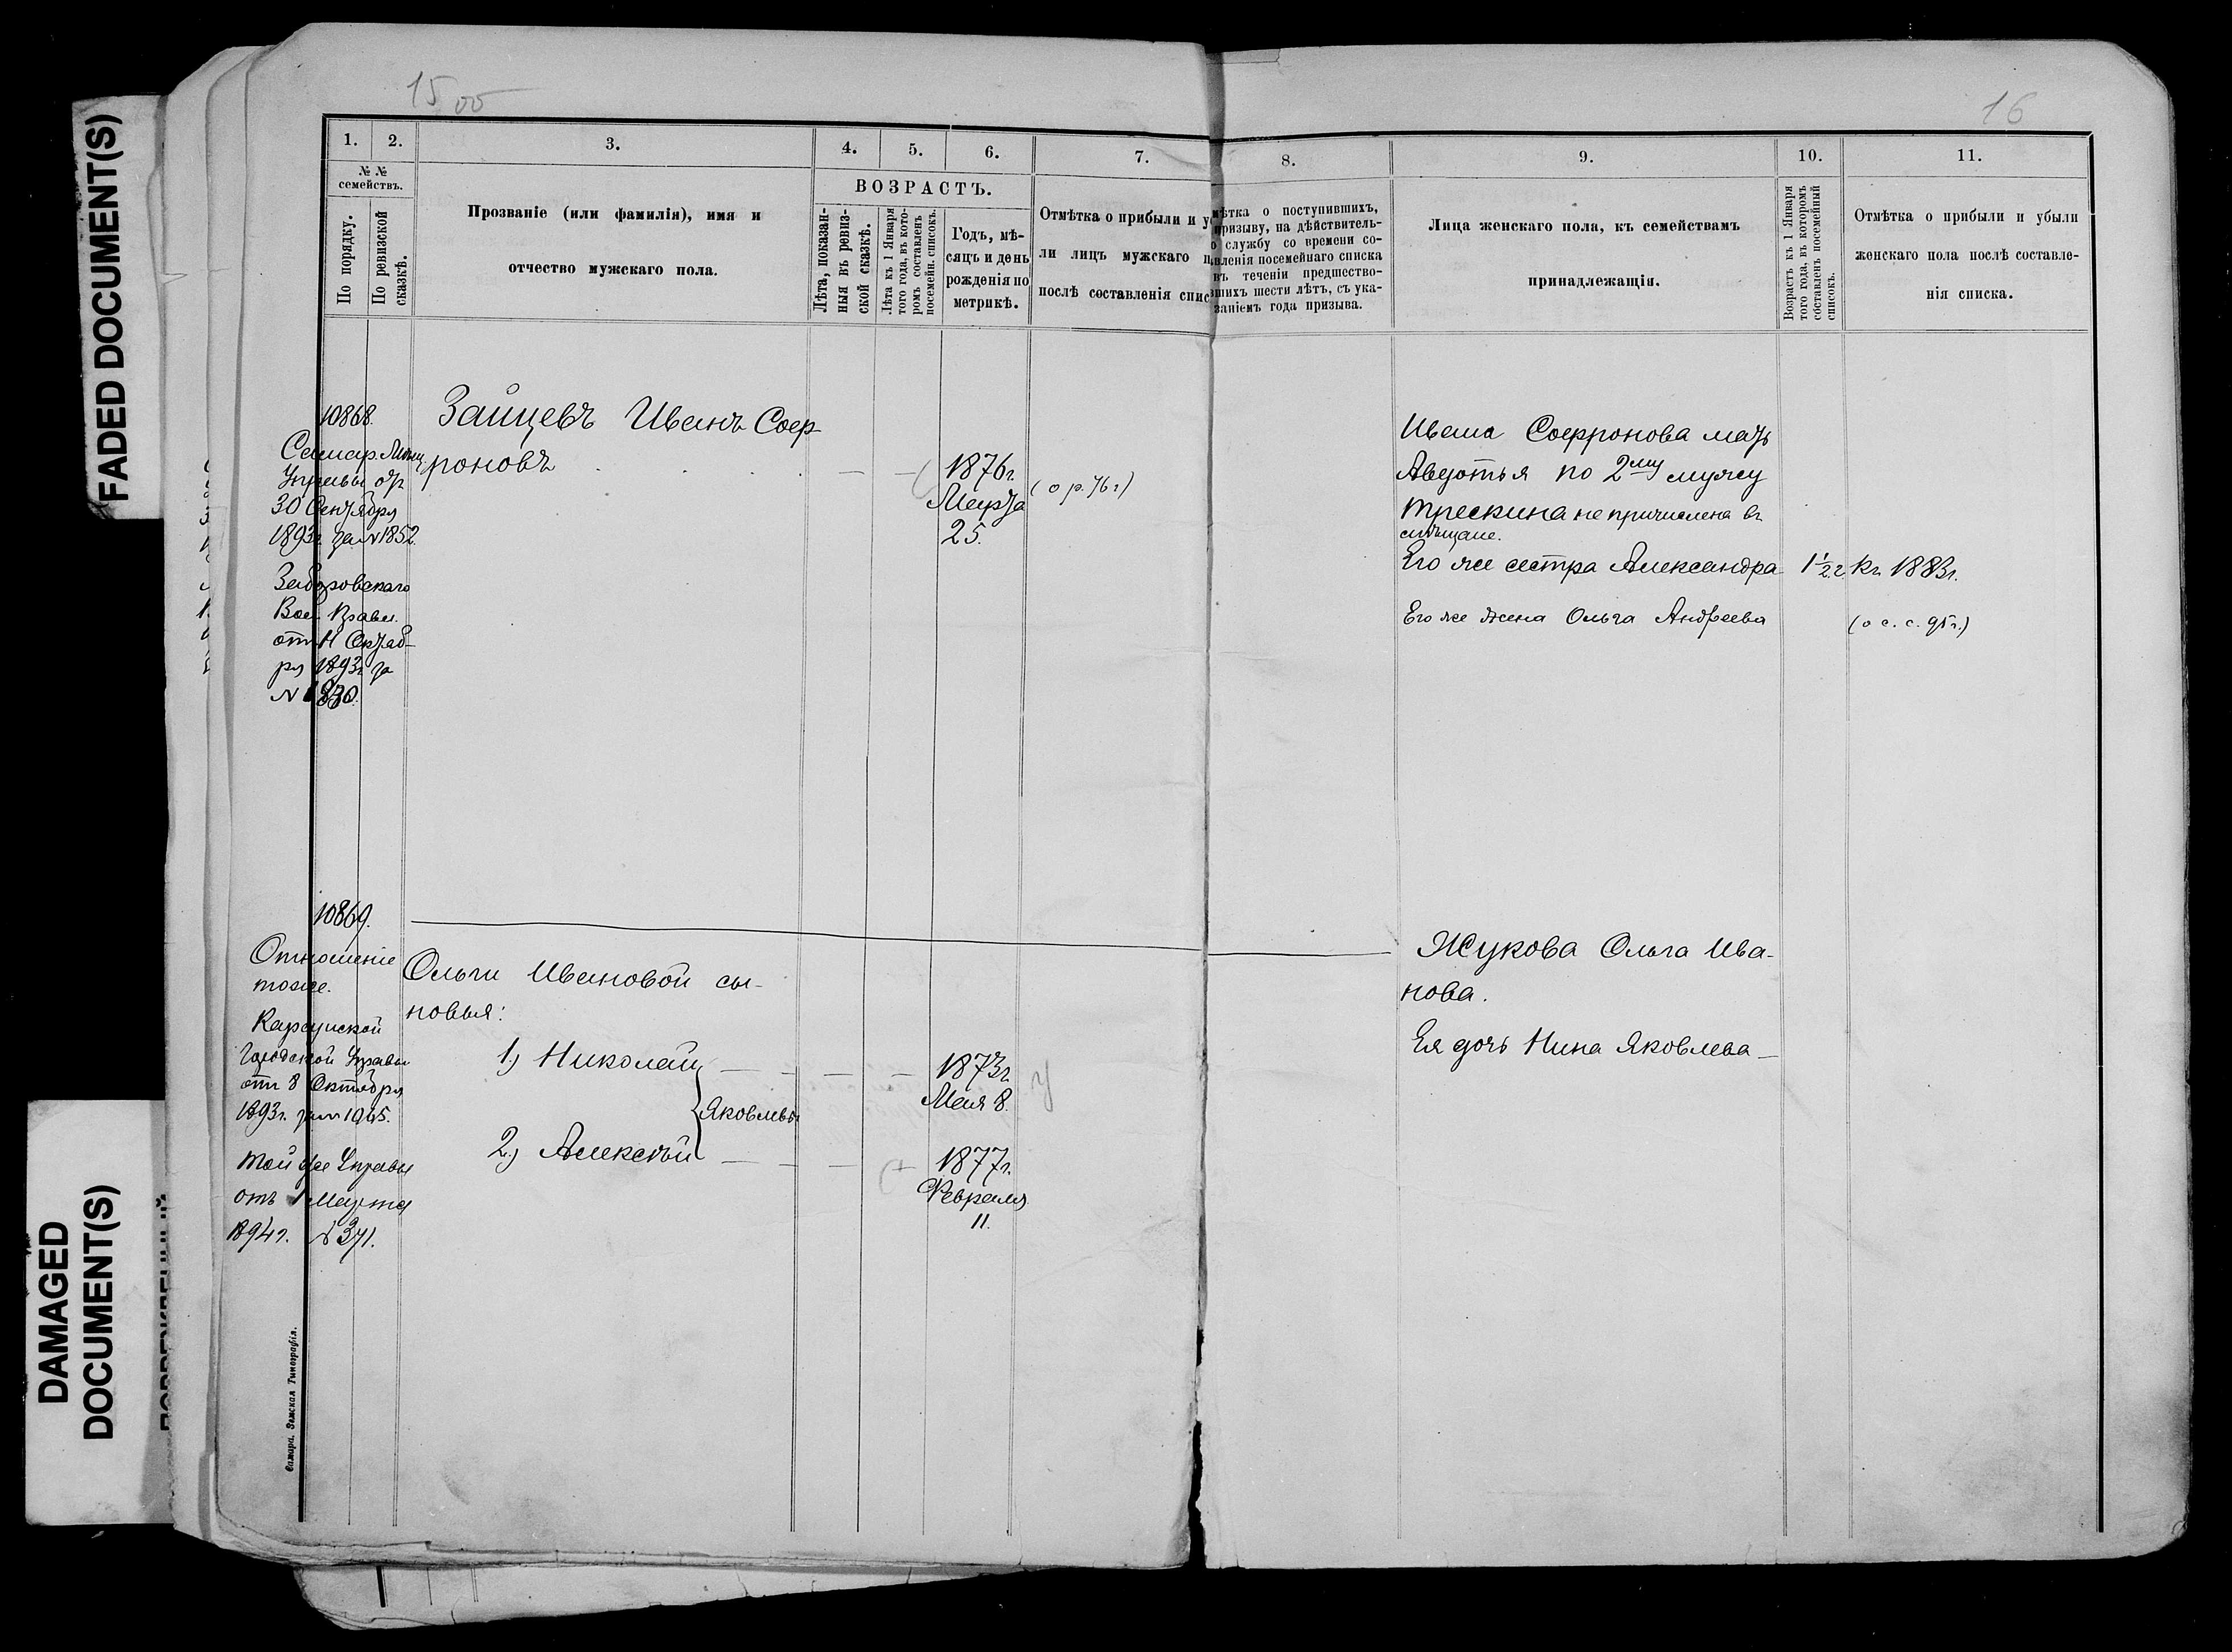 FADED DOCUMENT(S)
DAMAGED
DOCUMENT(S)
15
16
1.
2.
3.
4.
5.
6.
7.
8.
9.
10.
11.
№ №
семействъ.
По порядку.
По ревизской
сказкѣ.
Прозваніе (или фамилія), имя и
отчество мужскаго пола.
ВОЗРАСТЪ.
Лѣта, показан-
ныя въ ревиз-
ской сказкѣ.
Лѣта къ 1 Января
того года, въ кото-
ромъ составленъ
посемейн. списокъ.
Годъ, мѣ-
сяцъ и день
рожденія по
метрикѣ.
Отмѣтка о прибыли и у
ли лицъ мужскаго п
послѣ составленія спис
мѣтка о поступившихъ,
призыву, на дѣйствитель-
о службу со времени со-
вленія посемейнаго списка
въ теченіи предшество-
вшихъ шести лѣтъ, съ ука-
заніемъ года призыва.
Лица женскаго пола, къ семействамъ
принадлежащія.
Возрастъ къ 1 Января
того года, въ которомъ
составленъ посемейный
списокъ.
Отмѣтка о прибыли и убыли
женскаго пола послѣ составле-
нія списка.
10868.
Самар. Мѣщ.
Управы отъ
30 Сентября
1893г. за № 1852.
отъ 11 Октяб-
ря 1893г. за
Зайцевъ Иванъ Соф-
роновъ
1876г.
Марта
25.
(о р. 76 г.)
Ивана Софронова мать
Авдотья по 2му мужу
Трескина не причислена въ
мѣщане.
Его же сестра Александра
1 1/2 г. къ 1883г.
Его же жена Ольга Андреева
(о с. с. 95 г.)
10869.
Отношеніе
тоже.
Карсунской
Городской Управы
отъ 8 Октября
1893г. за № 1045.
Той же Управы
отъ 1 Марта
1894г. № 371.
Ольги Ивановой сы-
новья:
1.) Николай
Яковлевы
2.) Алексѣй
1873г.
Мая 8.
1877г.
Февраля
11.
Жукова Ольга Ива-
нова.
Ея дочь Нина Яковлева
Самара. Земская Типографія.